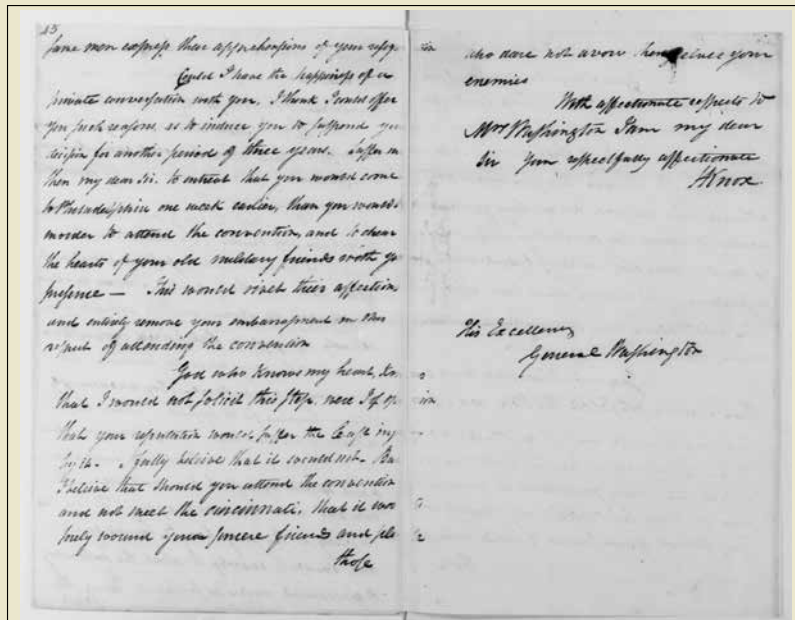 43
same men express their apprehensions of your resig
Could I have the happiness of a
private conversation with you, I think I could offer
you such reasons, as to induce you to suspend yo
decision for another period of three years. Suffer m
then my dear Sir. to entreat that you would come
to Philadelphia one week earlier, than you would
in order to attend the convention, and to chear
the hearts of your old military friends with yo
presence — This would rivet their affection
and entirely remove your embarrassment in this
respect of attending the convention
God who knows my heart, kn
that I would not solicit this step, were I of op
that your reputation would suffer the least inj
by it. I fully believe that it would not. Bu
I believe that should you attend the convention
and not meet the cincinnati, that it wou
sorely wound your sincere friends and ple
those
who dare not avow themselves your
enemies
With affectionate respects to
Mrs Washington I am my dear
Sir your respectfully affectionate
HKnox
His Excellency
General Washington